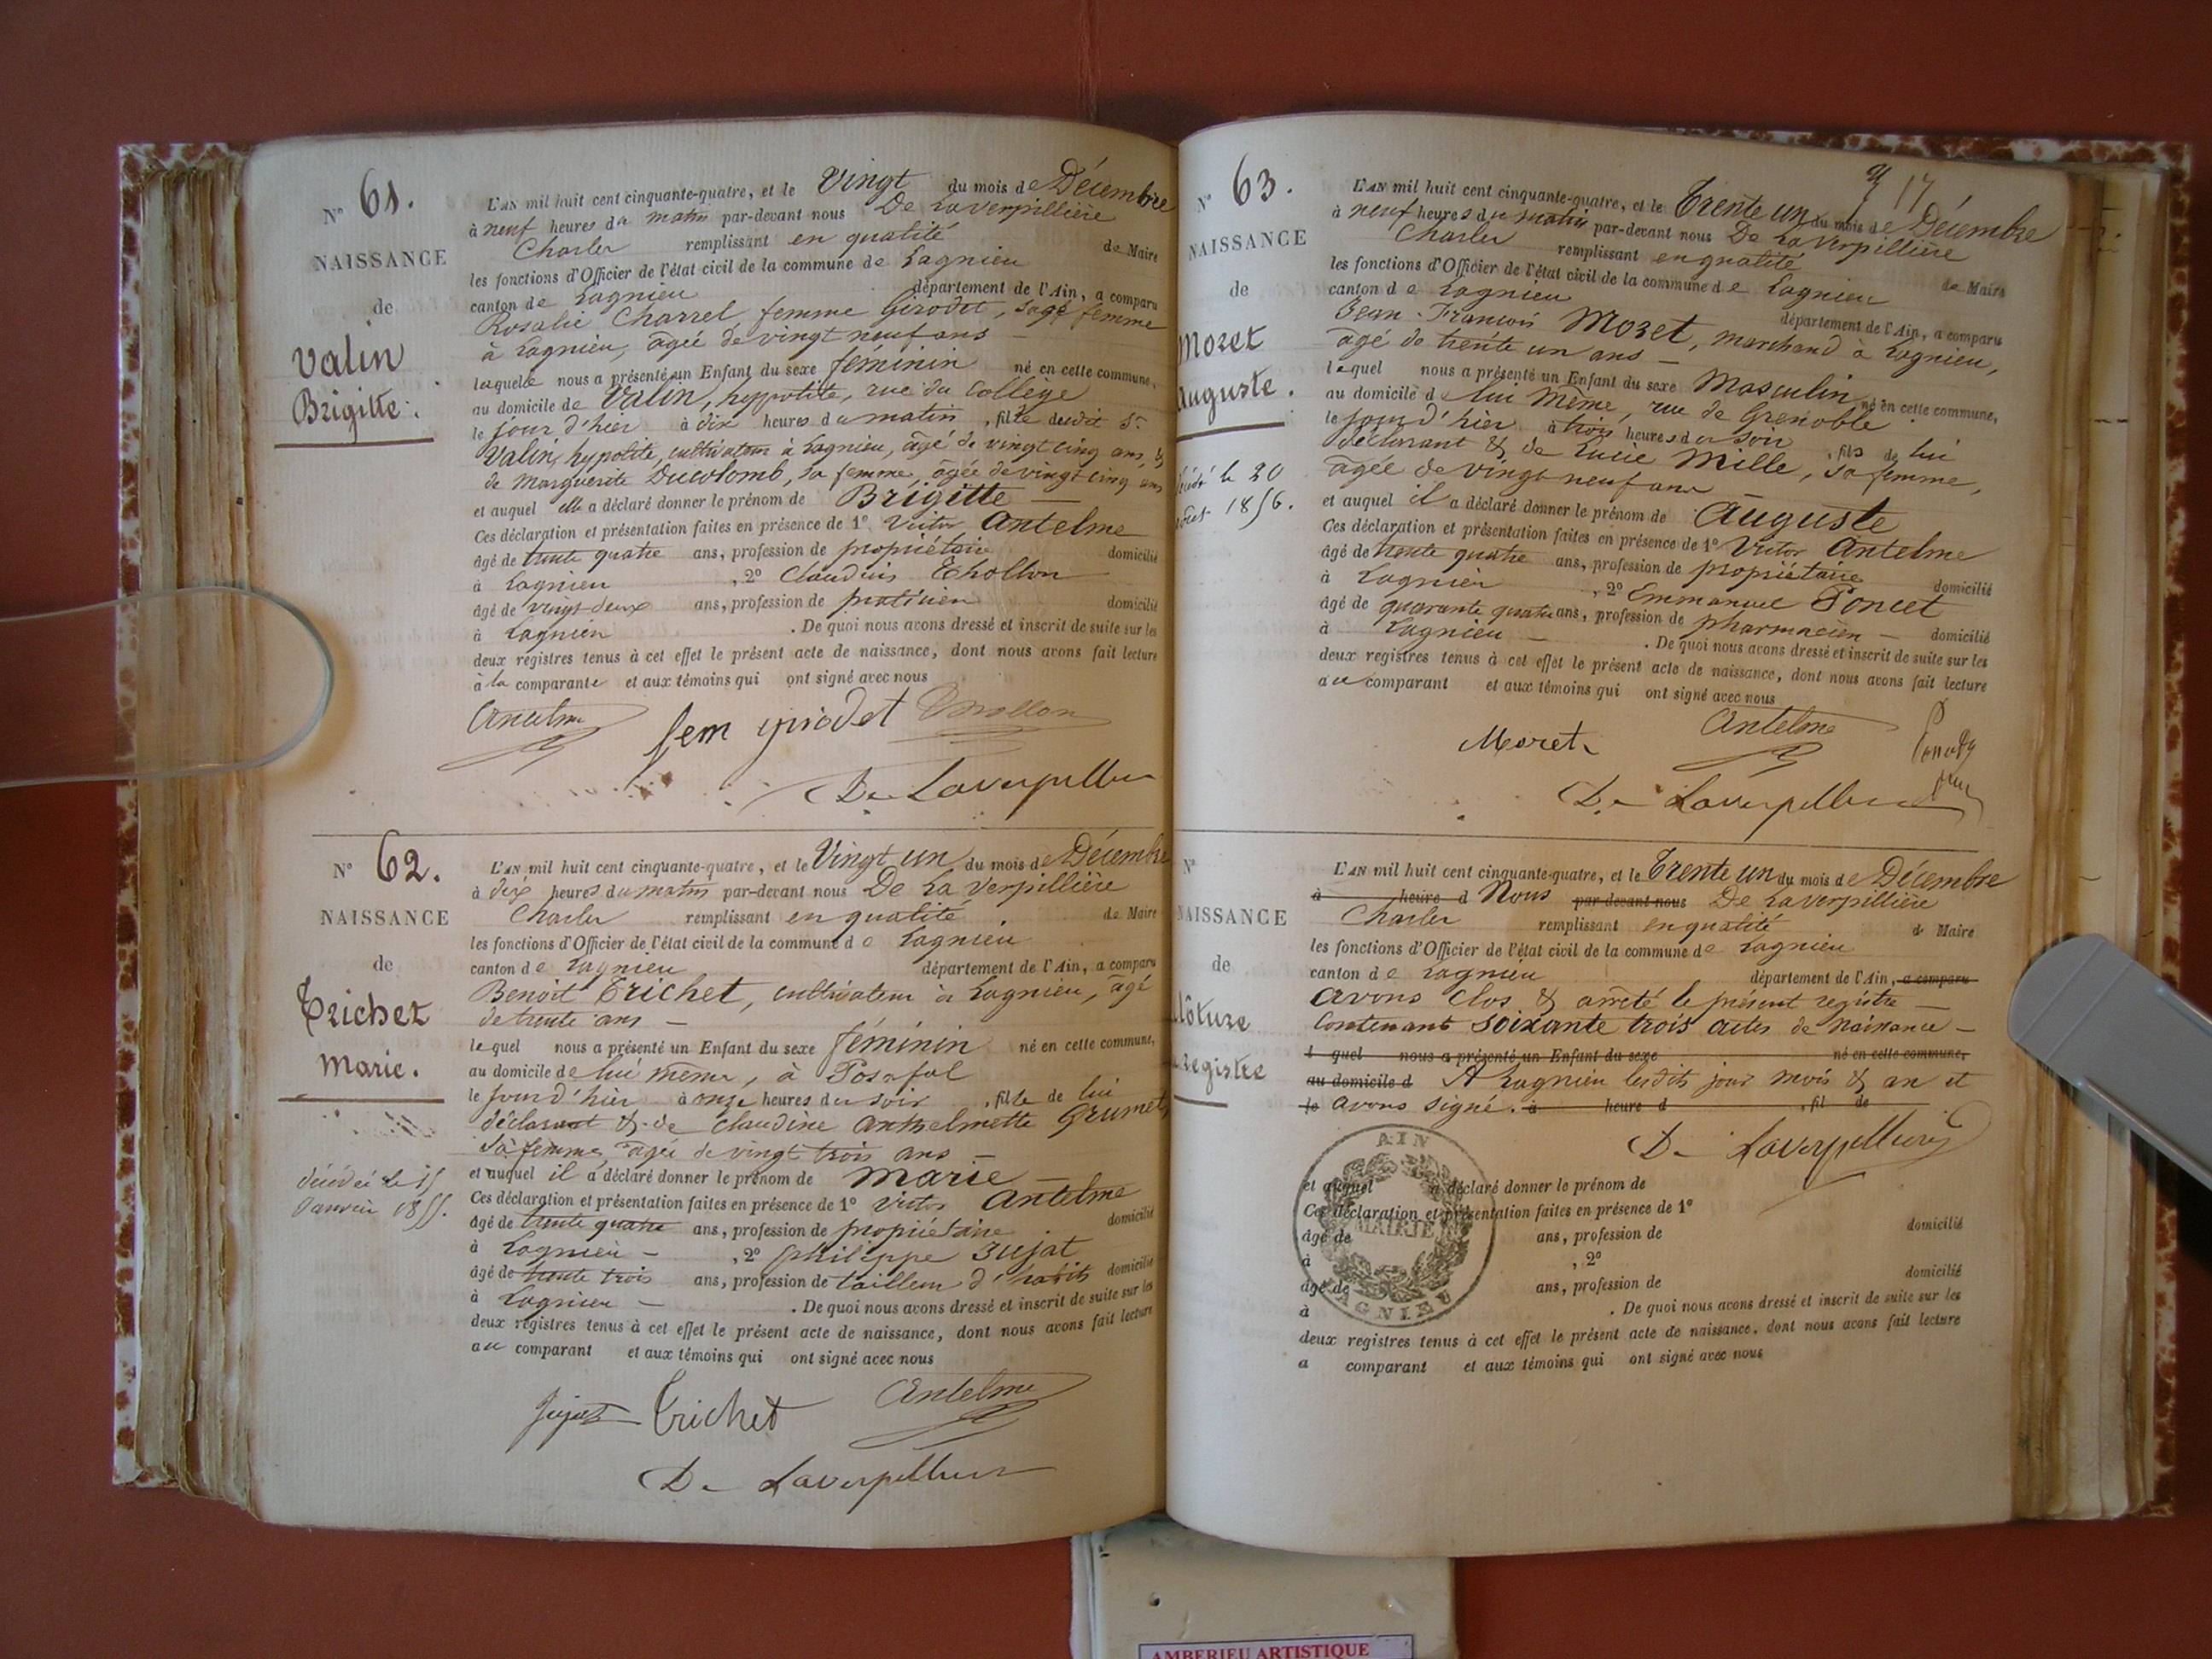 N° 61.
NAISSANCE
de
Valin
Brigitte.
L'AN mil huit cent cinquante-quatre, et le Vingt du mois de Décembre
à neuf heures du matin par-devant nous De Laverpillière
Charles remplissant en qualité de Maire
les fonctions d'Officier de l'état civil de la commune de Lagnieu
canton de Lagnieu département de l'Ain, a comparu
Rosalie Charrel femme Girodet, sage femme
à Lagnieu, âgée de vingt neuf ans
laquelle nous a présenté un Enfant du sexe féminin né en cette commune,
au domicile de Valin, hyppolite, rue du Collège
le jour d'hier à dix heures du matin, fille dudit Sr
Valin, hypolite, cultivateur à Lagnieu, âgé de vingt cinq ans, &
de Marguerite Ducolomb, sa femme, âgée de vingt cinq ans
et auquel elle a déclaré donner le prénom de Brigitte
Ces déclaration et présentation faites en présence de 1° Victor Antelme
âgé de trente quatre ans, profession de propriétaire domicilié
à Lagnieu, 2° Claudius Thollon
âgé de vingt deux ans, profession de praticien domicilié
à Lagnieu. De quoi nous avons dressé et inscrit de suite sur les
deux registres tenus à cet effet le présent acte de naissance, dont nous avons fait lecture
à la comparante et aux témoins qui ont signé avec nous
Antelme fem girodet Thollon
De Laverpillière
N° 62.
NAISSANCE
de
Trichet
Marie.
décédée le 15
Janvier 1855.
L'AN mil huit cent cinquante-quatre, et le Vingt un du mois de Décembre
à dix heures du matin par-devant nous De La Verpillière
Charles remplissant en qualité de Maire
les fonctions d'Officier de l'état civil de la commune de Lagnieu
canton de Lagnieu département de l'Ain, a comparu
Benoit Trichet, cultivateur à Lagnieu, âgé
de trente ans
lequel nous a présenté un Enfant du sexe féminin né en cette commune,
au domicile de lui même, à Posafol
le jour d'hier à onze heures du soir, fille de lui
déclarant & de Claudine Anthelmette Grumet
sa femme, âgée de vingt trois ans
et auquel il a déclaré donner le prénom de Marie
Ces déclaration et présentation faites en présence de 1° Victor Antelme
âgé de trente quatre ans, profession de propriétaire domicilié
à Lagnieu, 2° philippe Jujat
âgé de trente trois ans, profession de tailleur d'habits domicilié
à Lagnieu. De quoi nous avons dressé et inscrit de suite sur les
deux registres tenus à cet effet le présent acte de naissance, dont nous avons fait lecture
au comparant et aux témoins qui ont signé avec nous
Jujat Trichet Antelme
De Laverpillière
17
N° 63.
NAISSANCE
de
Moret
Auguste.
le 20
1856.
L'AN mil huit cent cinquante-quatre, et le Trente un du mois de Décembre
à neuf heures du matin par-devant nous De La Verpillière
Charles remplissant en qualité de Maire
les fonctions d'Officier de l'état civil de la commune de Lagnieu
canton de Lagnieu département de l'Ain, a comparu
Jean-François Moret, marchand à Lagnieu,
âgé de trente un ans
lequel nous a présenté un Enfant du sexe Masculin né en cette commune,
au domicile de lui même, rue de Grenoble
le jour d'hier à trois heures du soir, fils de lui
déclarant & de Lucie Mille, sa femme,
âgée de vingt neuf ans
et auquel il a déclaré donner le prénom de Auguste
Ces déclaration et présentation faites en présence de 1° Victor Antelme
âgé de trente quatre ans, profession de propriétaire domicilié
à Lagnieu, 2° Emmanuel Poncet
âgé de quarante quatre ans, profession de pharmacien domicilié
à Lagnieu. De quoi nous avons dressé et inscrit de suite sur les
deux registres tenus à cet effet le présent acte de naissance, dont nous avons fait lecture
au comparant et aux témoins qui ont signé avec nous
Moret Antelme
De Laverpillière
N°
NAISSANCE
de
clôture
registre
L'AN mil huit cent cinquante-quatre, et le Trente un du mois de Décembre
à heure d Nous par-devant nous De Laverpillière
Charles remplissant en qualité de Maire
les fonctions d'Officier de l'état civil de la commune de Lagnieu
canton de Lagnieu département de l'Ain, a comparu
avons clos & arrêté le présent registre
Contenant soixante trois actes de naissance
l quel nous a présenté un Enfant du sexe né en cette commune,
au domicile d A Lagnieu lesdits jour mois & an et
le avons signé. à heure d, fil de
De Laverpillière
AIN
MAIRIE
LAGNIEU
et auquel a déclaré donner le prénom de
Ces déclaration et présentation faites en présence de 1°
âgé de ans, profession de domicilié
à, 2°
âgé de ans, profession de domicilié
à. De quoi nous avons dressé et inscrit de suite sur les
deux registres tenus à cet effet le présent acte de naissance, dont nous avons fait lecture
a comparant et aux témoins qui ont signé avec nous
AMBERIEU ARTISTIQUE